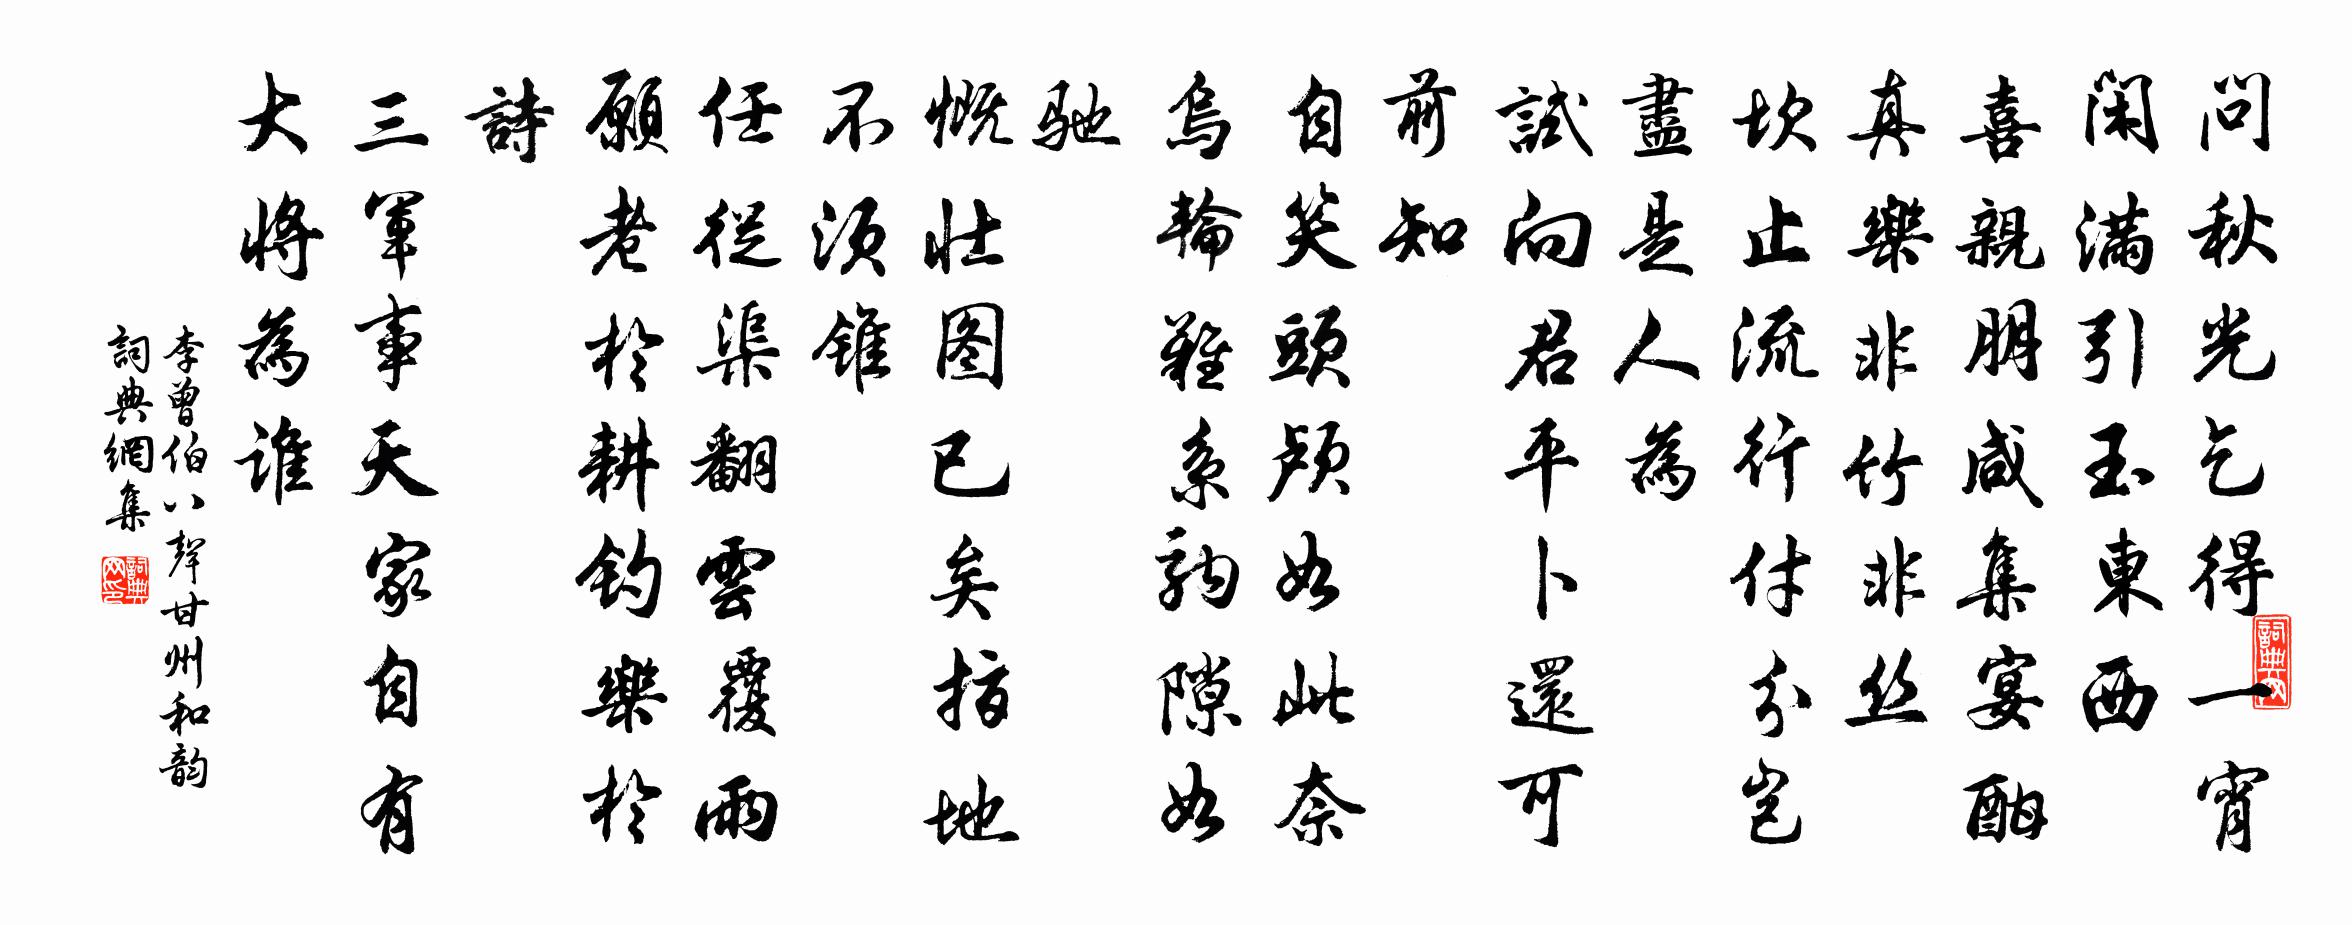 問秋光乞得一宵
閑滿引玉東西
喜親朋咸集宴酣
真樂非竹非丝
坎止流行付分豈
盡是人為
試向君平卜還可
前知
自笑頭顱如此奈
烏輪難系駒隙如
馳
慨壯图已矣指地
不須錐
任從渠翻雲覆雨
願老於耕釣樂於
詩
三軍事天家自有
大將為誰
李曾伯八聲甘州和韵
詞典網集
詞典网
詞典网印